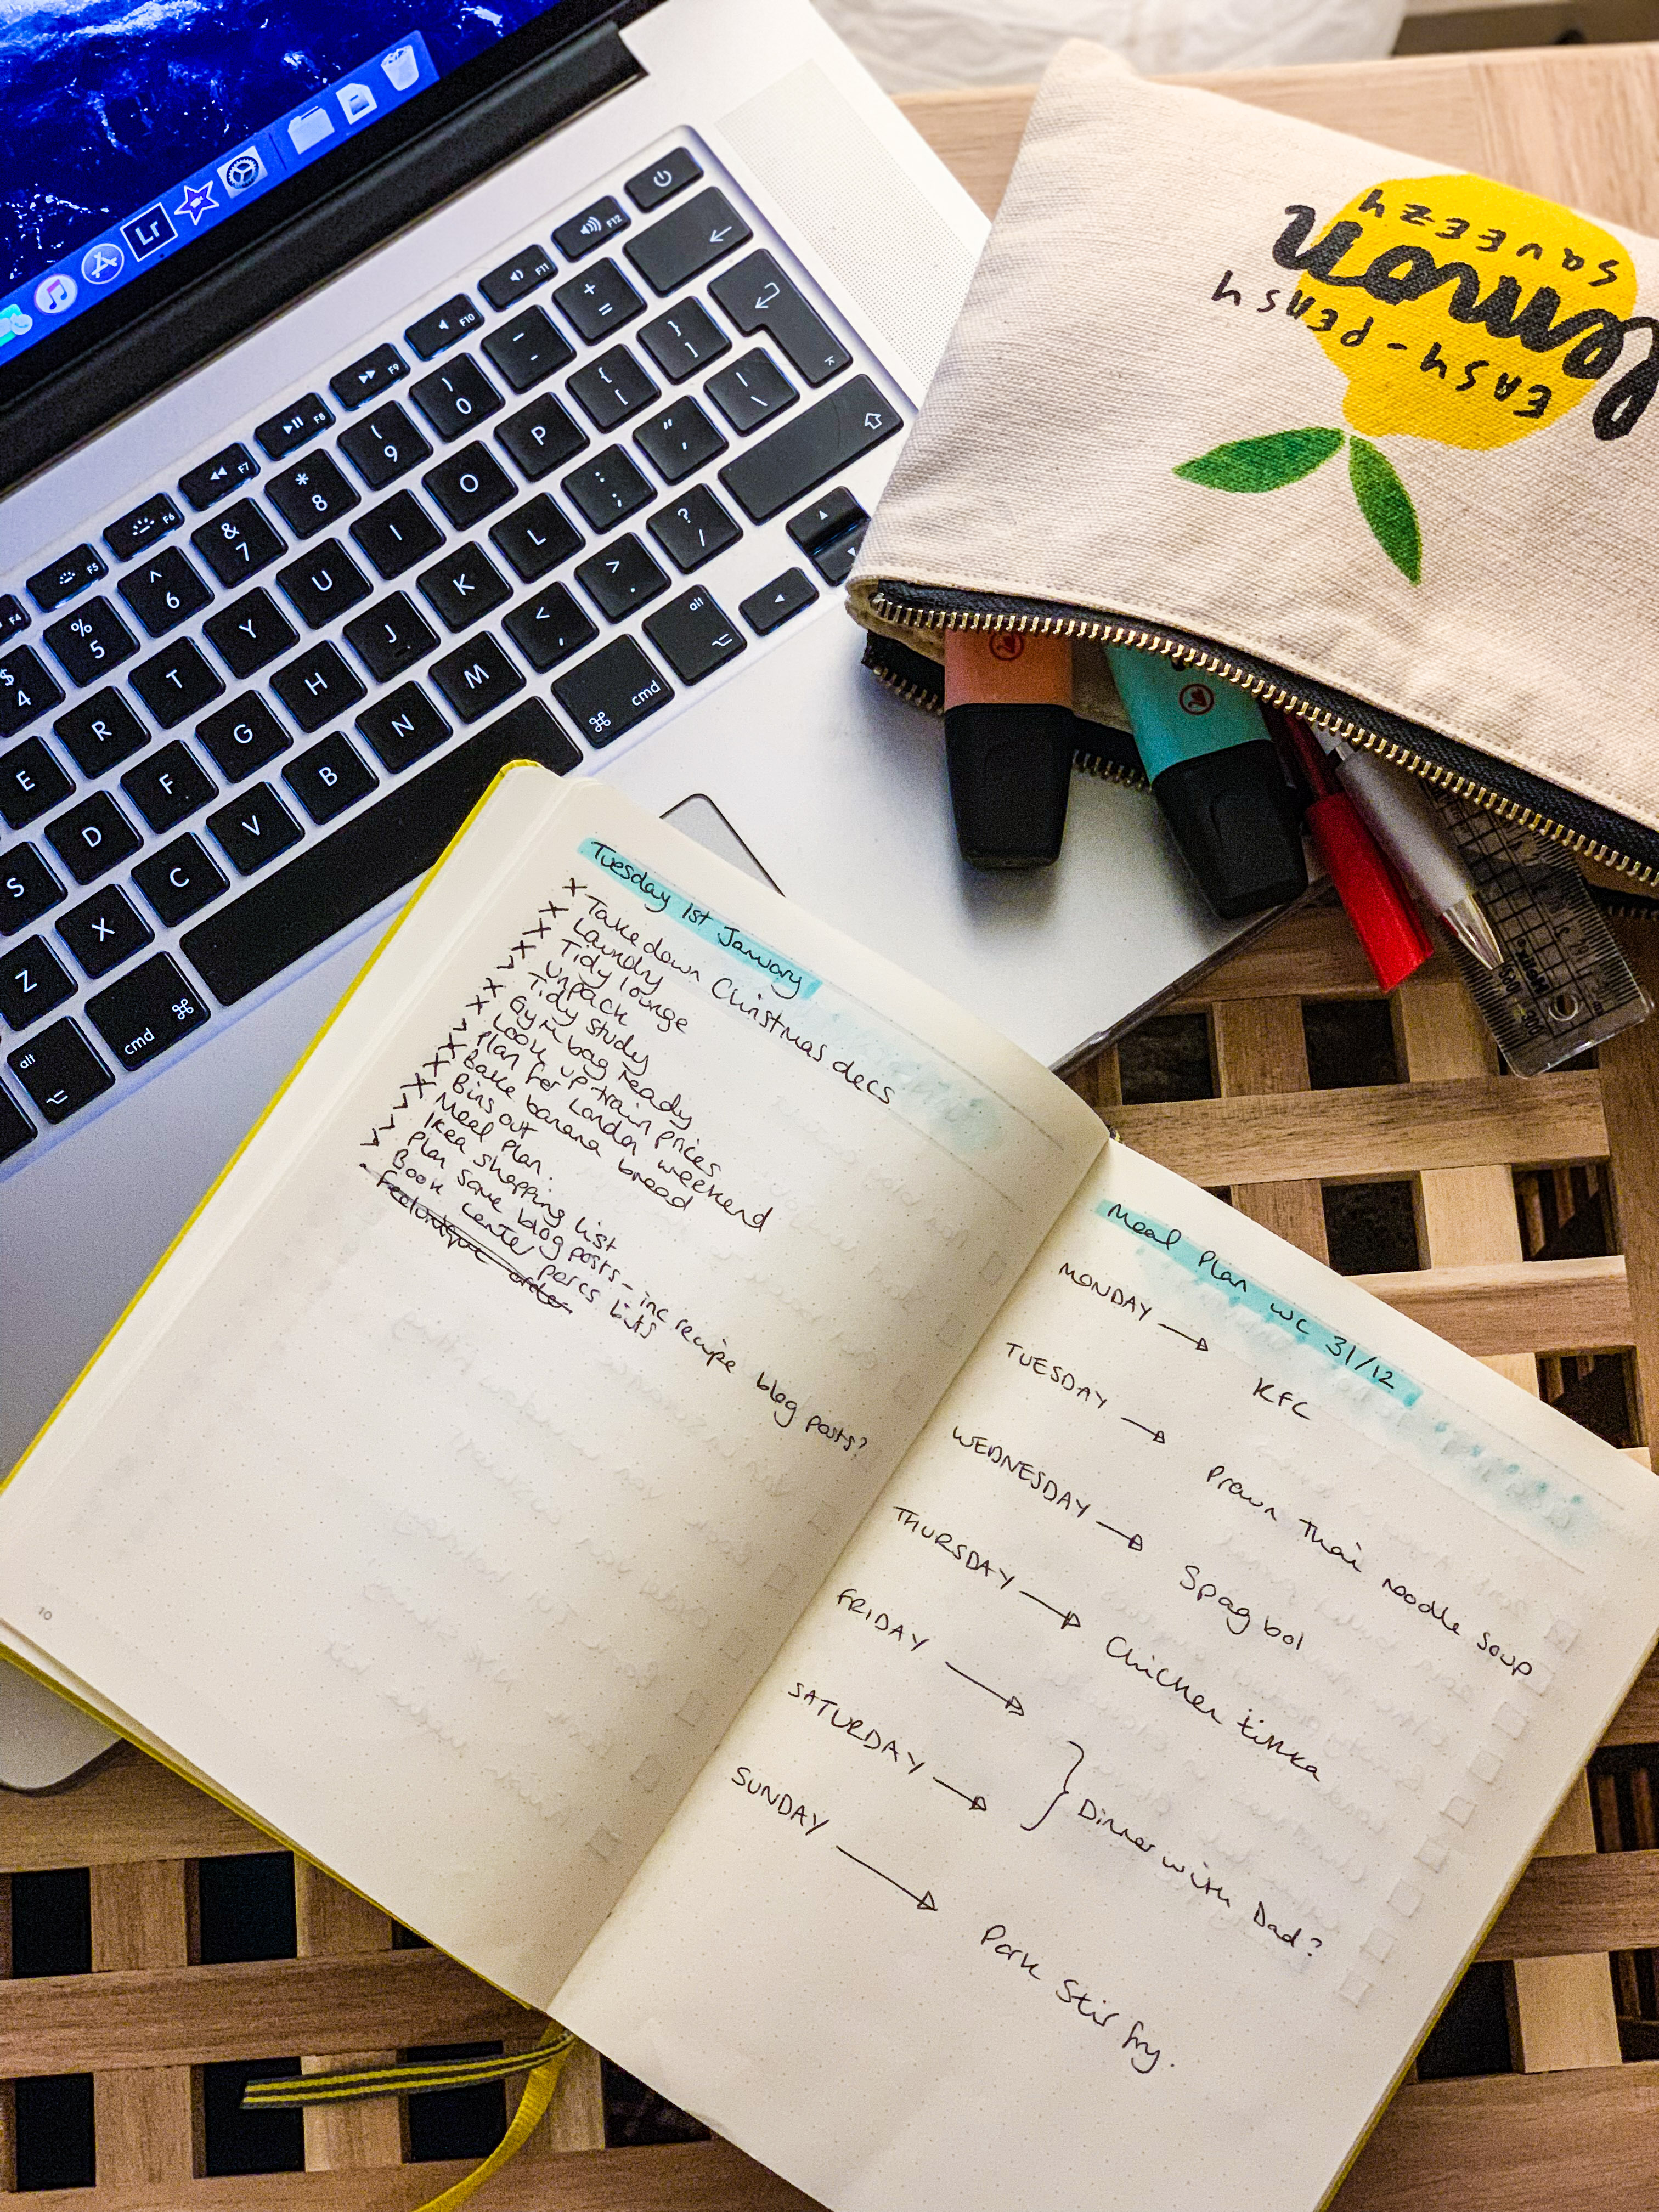 Tuesday 1st January
x Take down Christmas decs
x Laundry
x Tidy lounge
x Unpack
> Tidy study
x Gym bag ready
x Look up train prices
> Plan for London weekend
x Bake banana bread
x Bins out
x Meal Plan.
> Ikea shopping list
> Plan some blog posts - inc recipe blog posts?
> Book center parcs bits
. Feelunique order
10
Meal Plan WC 31/12
MONDAY → KFC
TUESDAY → Prawn Thai noodle soup
WEDNESDAY → Spag bol
THURSDAY → Chicken tikka
FRIDAY →
SATURDAY → } Dinner with Dad?
SUNDAY → Pork Stir fry.
EASY-PEASY
lemon
SQUEEZY
Lr
F4 F5 F6 F7 F8 F9 F10 F11 F12
$ 4 % 5 ^ 6 & 7 * 8 ( 9 ) 0 _ - + =
E R T Y U I O P { [ } ]
S D F G H J K L : ; " ' | \
Z X C V B N M < , > . ? /
alt cmd ⌘ ⌘ cmd alt